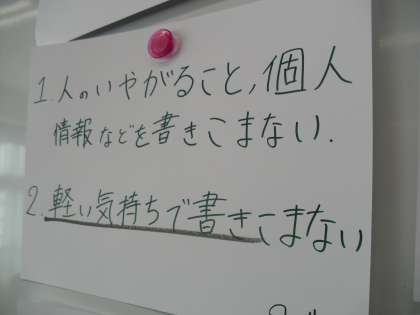 1.人のいやがること,個人
情報などを書きこまない.
2.軽い気持ちで書きこまない